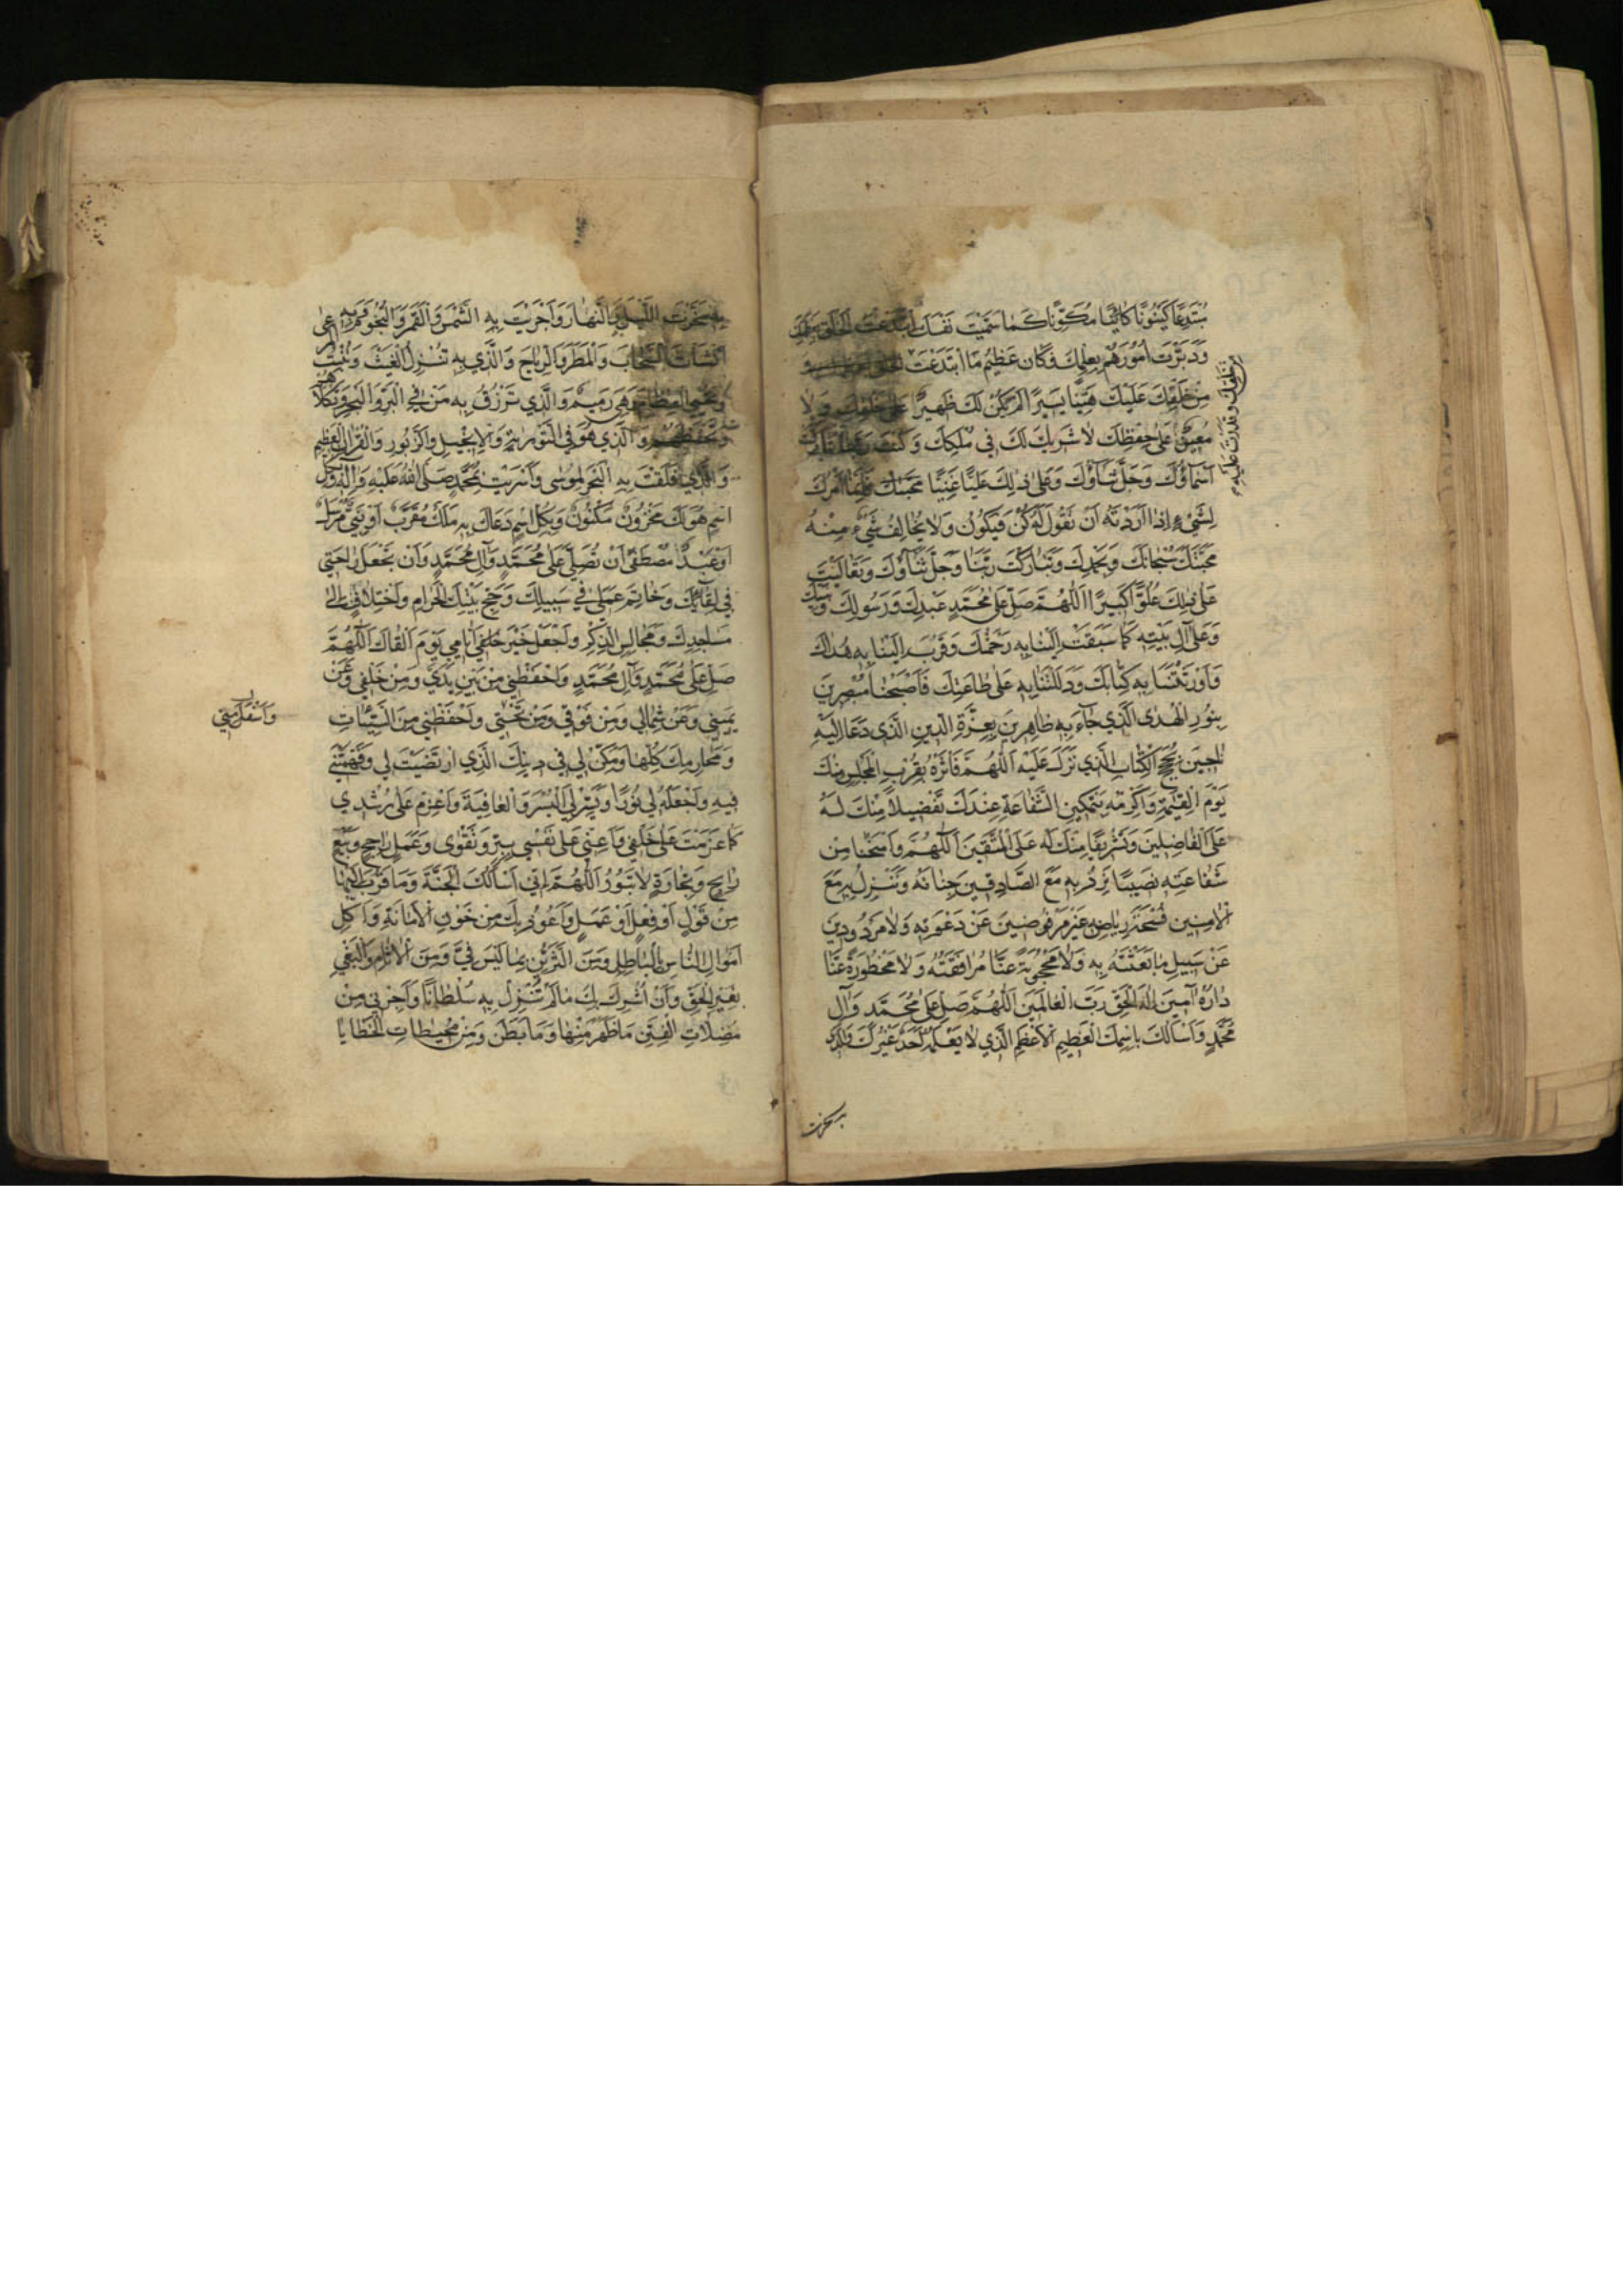 مُبْتَدِعًا كَيْنُونًا كَائِنًا مُكَوِّنًا كَمَا سَمَّيْتَ نَفْسَكَ ابْتَدَعْتَ الْخَلْقَ
وَدَبَّرْتَ اُمُورَهُمْ بِعِلْمِكَ فَكَانَ عَظِيمُ مَا ابْتَدَعْتَ
مِنْ خَلْقِكَ عَلَيْكَ هَيِّنًا يَسِيرًا لَمْ يَكُنْ لَكَ ظَهِيرٌ عَلَى خَلْقِكَ وَلَا
مُعِينٌ عَلَى حِفْظِكَ لَا شَرِيكَ لَكَ فِي مُلْكِكَ وَكُنْتَ رَبَّنَا تَبَارَكَتْ
اَسْمَاؤُكَ وَجَلَّ ثَنَاؤُكَ وَعَلَى ذٰلِكَ عَلِيًّا غَنِيًّا اَمْرُكَ
لِشَيْءٍ اِذَا اَرَدْتَهُ اَنْ تَقُولَ لَهُ كُنْ فَيَكُونُ وَلَا يُخَالِفُ شَيْءٌ مِنْهُ
مَحَبَّتَكَ سُبْحَانَكَ وَبِحَمْدِكَ وَتَبَارَكْتَ رَبَّنَا وَجَلَّ ثَنَاؤُكَ وَتَعَالَيْتَ
عَلَى ذٰلِكَ عُلُوًّا كَبِيرًا اَللّٰهُمَّ صَلِّ عَلَى مُحَمَّدٍ عَبْدِكَ وَرَسُولِكَ وَنَبِيِّكَ
وَعَلَى آلِ بَيْتِهِ كَمَا سَبَقَتْ اِلَيْنَا بِهِ رَحْمَتُكَ وَقَرُبَ اِلَيْنَا بِهِ هُدَاكَ
وَاَوْرَثْتَنَا بِهِ كِتَابَكَ وَدَلَلْتَنَا بِهِ عَلَى طَاعَتِكَ فَاَصْبَحْنَا مُبْصِرِينَ
بِنُورِ الْهُدَى الَّذِي جَاءَ بِهِ ظَاهِرِينَ بِعِزَّةِ الدِّينِ الَّذِي دَعَا اِلَيْهِ
نَاجِينَ بِحُجَجِ الْكِتَابِ الَّذِي نَزَلَ عَلَيْهِ اَللّٰهُمَّ فَآثِرْهُ بِقُرْبِ الْمَجْلِسِ مِنْكَ
يَوْمَ الْقِيٰمَةِ وَاَكْرِمْهُ بِتَمْكِينِ الشَّفَاعَةِ عِنْدَكَ تَفْضِيلًا مِنْكَ لَهُ
عَلَى الْفَاضِلِينَ وَتَشْرِيفًا مِنْكَ لَهُ عَلَى الْمُتَّقِينَ اَللّٰهُمَّ وَامْنَحْنَا مِنْ
شَفَاعَتِهِ نَصِيبًا نَرِدُ بِهِ مَعَ الصَّادِقِينَ جِنَانَهُ وَنَنْزِلُ بِهِ مَعَ
الْآمِنِينَ فُسْحَةَ رِيَاضِهِ غَيْرَ مَرْفُوضِينَ عَنْ دَعْوَتِهِ وَلَا مَرْدُودِينَ
عَنْ سَبِيلِ مَا بَعَثْتَهُ بِهِ وَلَا مَحْجُوبَةً عَنَّا مُرَافَقَتُهُ وَلَا مَحْظُورَةً عَنَّا
دَارُهُ آمِينَ اِلٰهَ الْحَقِّ رَبَّ الْعَالَمِينَ اَللّٰهُمَّ صَلِّ عَلَى مُحَمَّدٍ وَآلِ
مُحَمَّدٍ وَاَسْاَلُكَ بِاسْمِكَ الْعَظِيمِ الْاَعْظَمِ الَّذِي لَا يَعْلَمُهُ اَحَدٌ غَيْرُكَ وَالَّذِي
سَخَّرْتَ
بِهِ سَخَّرْتَ اللَّيْلَ وَالنَّهَارَ وَاَجْرَيْتَ بِهِ الشَّمْسَ وَالْقَمَرَ وَالنُّجُومَ وَبِهِ
اَنْشَاْتَ السَّحَابَ وَالْمَطَرَ وَالرِّيَاحَ وَالَّذِي بِهِ تُنْزِلُ الْغَيْثَ وَتُنْبِتُ
وَتُحْيِي الْعِظَامَ وَهِيَ رَمِيمٌ وَالَّذِي تَرْزُقُ بِهِ مَنْ فِي الْبَرِّ وَالْبَحْرِ وَتَكْلَاُهُمْ
وَتَحْفَظُهُمْ وَالَّذِي هُوَ فِي التَّوْرٰيةِ وَالْاِنْجِيلِ وَالزَّبُورِ وَالْقُرْآنِ الْعَظِيمِ
وَالَّذِي فَلَقْتَ بِهِ الْبَحْرَ لِمُوسٰى وَاَسْرَيْتَ بِمُحَمَّدٍ صَلَّى اللّٰهُ عَلَيْهِ وَآلِهِ وَبِكُلِّ
اسْمٍ هُوَ لَكَ مَخْزُونٌ مَكْنُونٌ وَبِكُلِّ اسْمٍ دَعَاكَ بِهِ مَلَكٌ مُقَرَّبٌ اَوْ نَبِيٌّ مُرْسَلٌ
اَوْ عَبْدٌ مُصْطَفًى اَنْ تُصَلِّيَ عَلَى مُحَمَّدٍ وَآلِ مُحَمَّدٍ وَاَنْ تَجْعَلَ رَاحَتِي
فِي لِقَائِكَ وَخَاتِمَ عَمَلِي فِي سَبِيلِكَ وَحَجِّ بَيْتِكَ الْحَرَامِ وَاخْتِلَافٍ اِلَى
مَسَاجِدِكَ وَمَجَالِسِ الذِّكْرِ وَاجْعَلْ خَيْرَ اَيَّامِي يَوْمَ اَلْقَاكَ اَللّٰهُمَّ
صَلِّ عَلَى مُحَمَّدٍ وَآلِ مُحَمَّدٍ وَاحْفَظْنِي مِنْ بَيْنِ يَدَيَّ وَمِنْ خَلْفِي وَعَنْ
يَمِينِي وَعَنْ شِمَالِي وَمِنْ فَوْقِي وَمِنْ تَحْتِي وَاحْفَظْنِي مِنَ السَّيِّئَاتِ
وَاَسْفَلَ مِنِّي
وَمَحَارِمِكَ كُلِّهَا وَمَكِّنْ لِي فِي دِينِكَ الَّذِي ارْتَضَيْتَ لِي وَفَهِّمْنِي
فِيهِ وَاجْعَلْهُ لِي نُورًا وَيَسِّرْ لِيَ الْيُسْرَ وَالْعَافِيَةَ وَاعْزِمْ عَلَى رُشْدِي
كَمَا عَزَمْتَ عَلَى خَلْقِي وَاَعِنِّي عَلَى نَفْسِي بِبِرٍّ وَتَقْوٰى وَعَمَلٍ رَاجِحٍ وَبَيْعٍ
رَابِحٍ وَتِجَارَةٍ لَا تَبُورُ اَللّٰهُمَّ اِنِّي اَسْاَلُكَ الْجَنَّةَ وَمَا قَرَّبَ اِلَيْهَا
مِنْ قَوْلٍ اَوْ فِعْلٍ اَوْ عَمَلٍ وَاَعُوذُ بِكَ مِنْ خَوْنِ الْاَمَانَةِ وَاَكْلِ
اَمْوَالِ النَّاسِ بِالْبَاطِلِ وَمِنَ التَّزَيُّنِ بِمَا لَيْسَ فِيَّ وَمِنَ الْآثَامِ وَالْبَغْيِ
بِغَيْرِ الْحَقِّ وَاَنْ اُشْرِكَ بِكَ مَا لَمْ تُنَزِّلْ بِهِ سُلْطَانًا وَاَجِرْنِي مِنْ
مُضِلَّاتِ الْفِتَنِ مَا ظَهَرَ مِنْهَا وَمَا بَطَنَ وَمِنْ مُحِيطَاتِ الْخَطَايَا